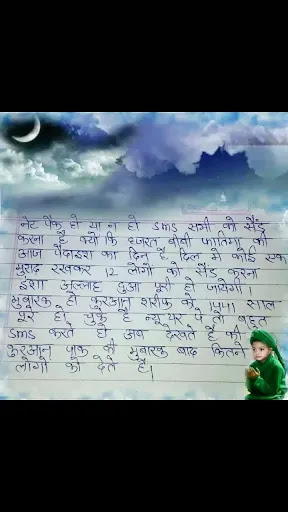 नेट पैक हो या न हो sms सभी को सैंड
करना है क्यो कि हजरत बीबी फातिमा की
आज पैदाइश का दिन है दिल मे कोई एक
मुराद रखकर 12 लोगो को सैंड करना
इंशा अल्लाह दुआ पूरी हो जायेगी।
मुबारक हो कुरआन शरीफ के 1441 साल
पूरे हो चुके है न्यू यर पे तो बहुत
sms करते हो अब देखते हैं की
कुरआन पाक की मुबारक बाद कितने
लोगो को देते हैं।